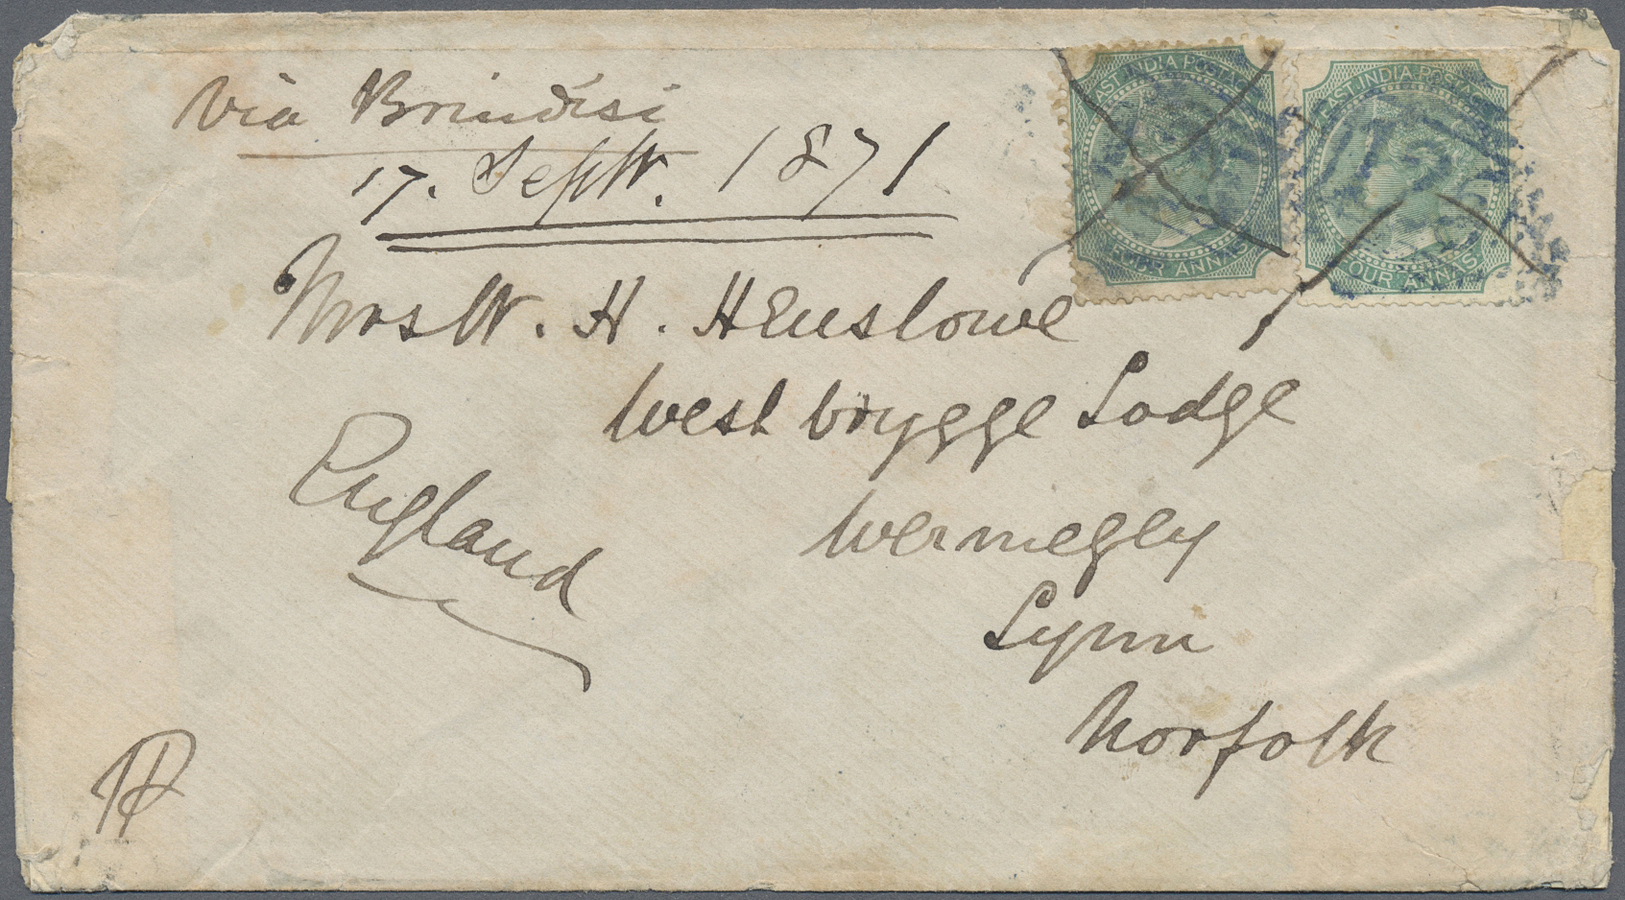 via Brindisi
17. Septr. 1871
EAST INDIA POSTAGE
FOUR ANNAS
EAST INDIA POSTAGE
FOUR ANNAS
Mrs W. H. Henslowe
West brygge Lodge
Wermegey
Lynn
Norfolk
England